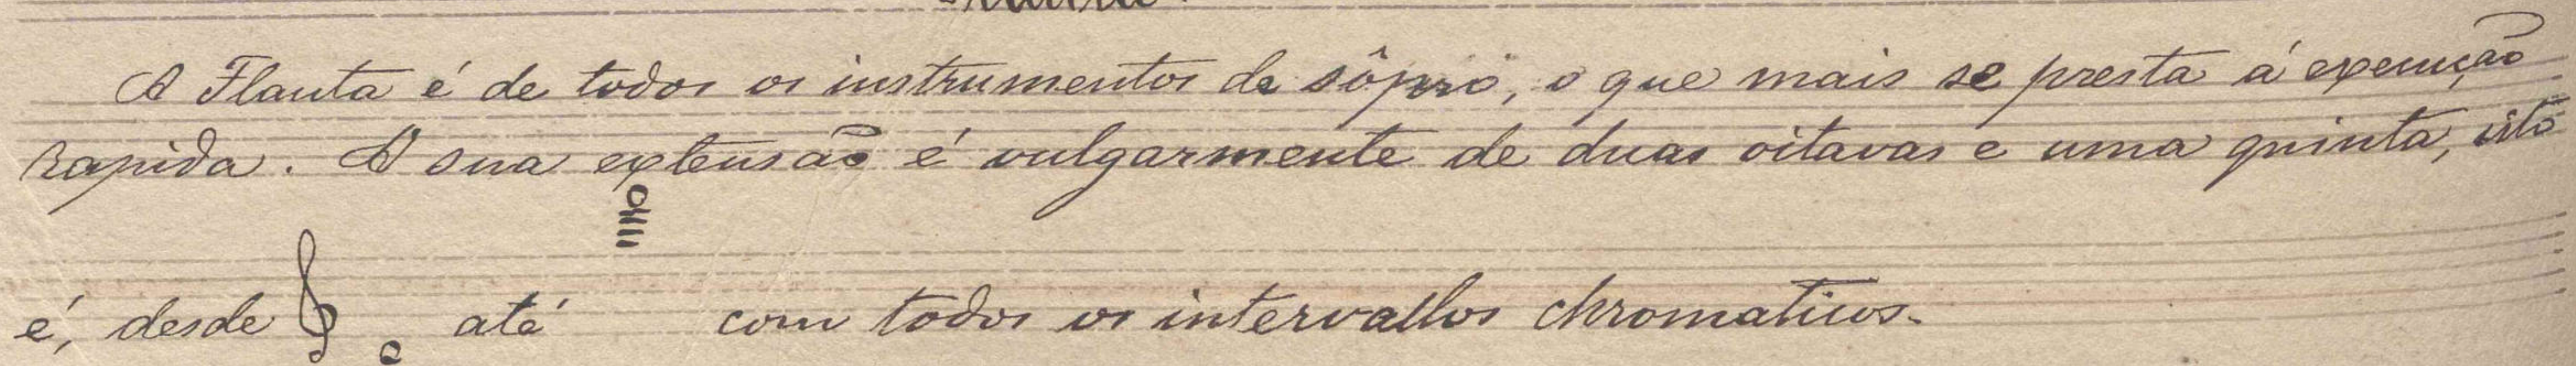 A Flauta é de todos os instrumentos de sôpro, o que mais se presta á execução
rapida. A sua extensão é vulgarmente de duas oitavas e uma quinta, isto
é, desde até com todos os intervallos chromaticos.